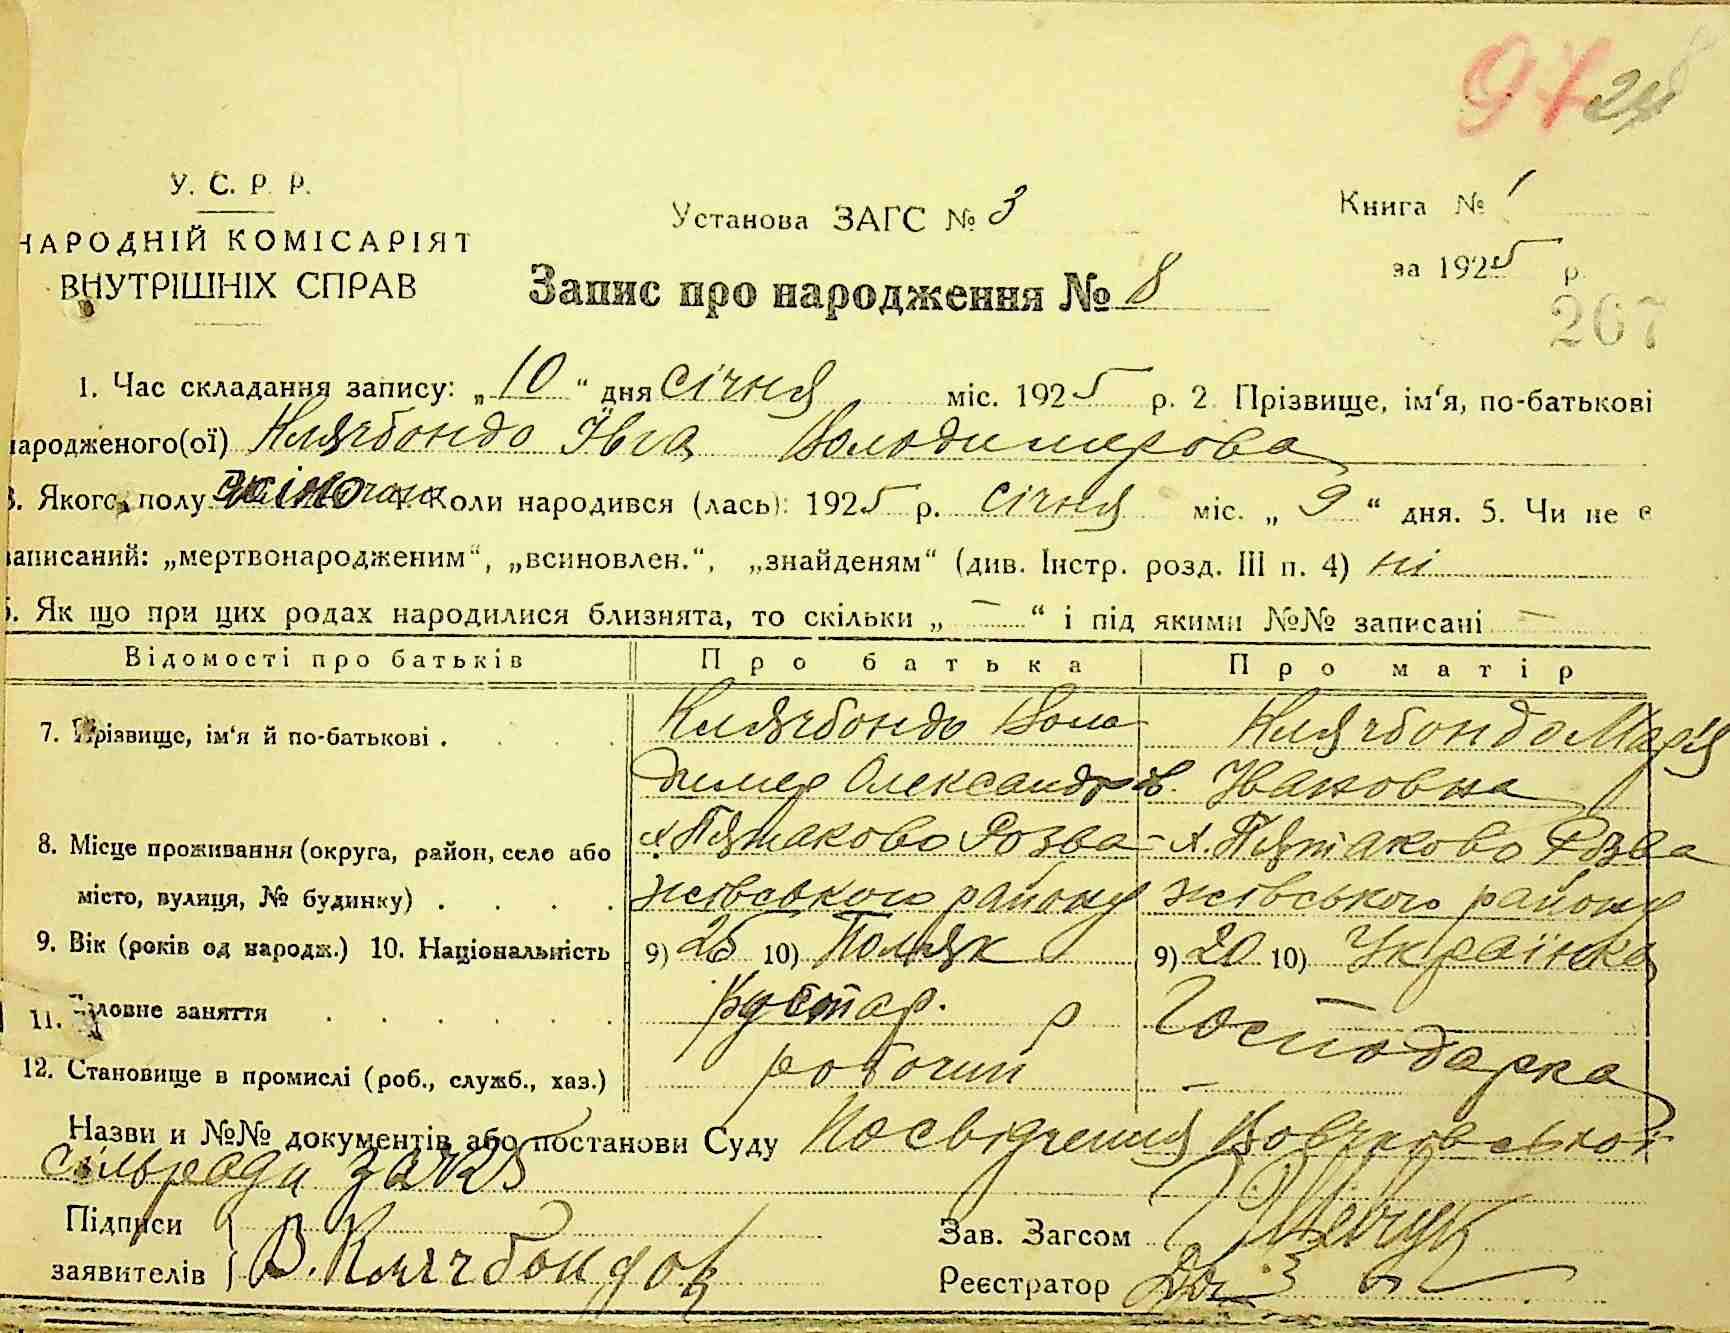 97 24
У. С. Р. Р.
НАРОДНІЙ КОМІСАРІЯТ
ВНУТРІШНІХ СПРАВ
Установа ЗАГС № 3
Книга № 1
за 1925 р.
Запис про народження № 8
267
1. Час складання запису: „10“ дня січня міс. 1925 р. 2 Прізвище, ім‘я, по-батькові
народженого(ої) Клячбондо Ївга Володимерова
3. Якого полу жіночого 4. Коли народився (лась): 1925 р. січня міс. „ 9 “ дня. 5. Чи не є
записаний: „мертвонародженим“, „всиновлен.“, „знайденям“ (див. Інстр. розд. III п. 4) ні
6. Як що при цих родах народилися близнята, то скільки „ — “ і під якими №№ записані —
Відомості про батьків Про батька Про матір
7. Прізвище, ім‘я й по-батькові . Клячбондо Воло- Клячбондо Марія
димер Олександров. Івановна
8. Місце проживання (округа, район, село або х. Пятаково Розва- х. Пятаково Розва
місто, вулиця, № будинку) . . . . жівського району жівського району
9. Вік (років од народж.) 10. Національність 9) 25 10) Поляк 9) 20 10) Українка
11. Головне заняття . . . . . . Кустар. Господарка
12. Становище в промислі (роб., служб., хаз.) робочий —
Назви и №№ документів або постанови Суду Посвідчення
сільради
Підписи
заявителів В. Клячбондо
Зав. Загсом Шевчук
Реєстратор